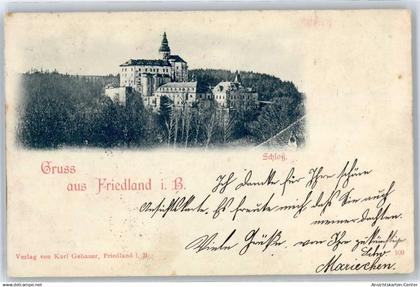 Gruss
aus Friedland i. B.
Schloß.
Ich danke für Ihre schöne
Ansichtskarte. Es freute mich das Sie auch
meiner dachten.
Viele Grüße, von Ihr
Mariechen.
Verlag von Karl Gebauer, Friedland i. B.
109
© Ansichtskarten-Center